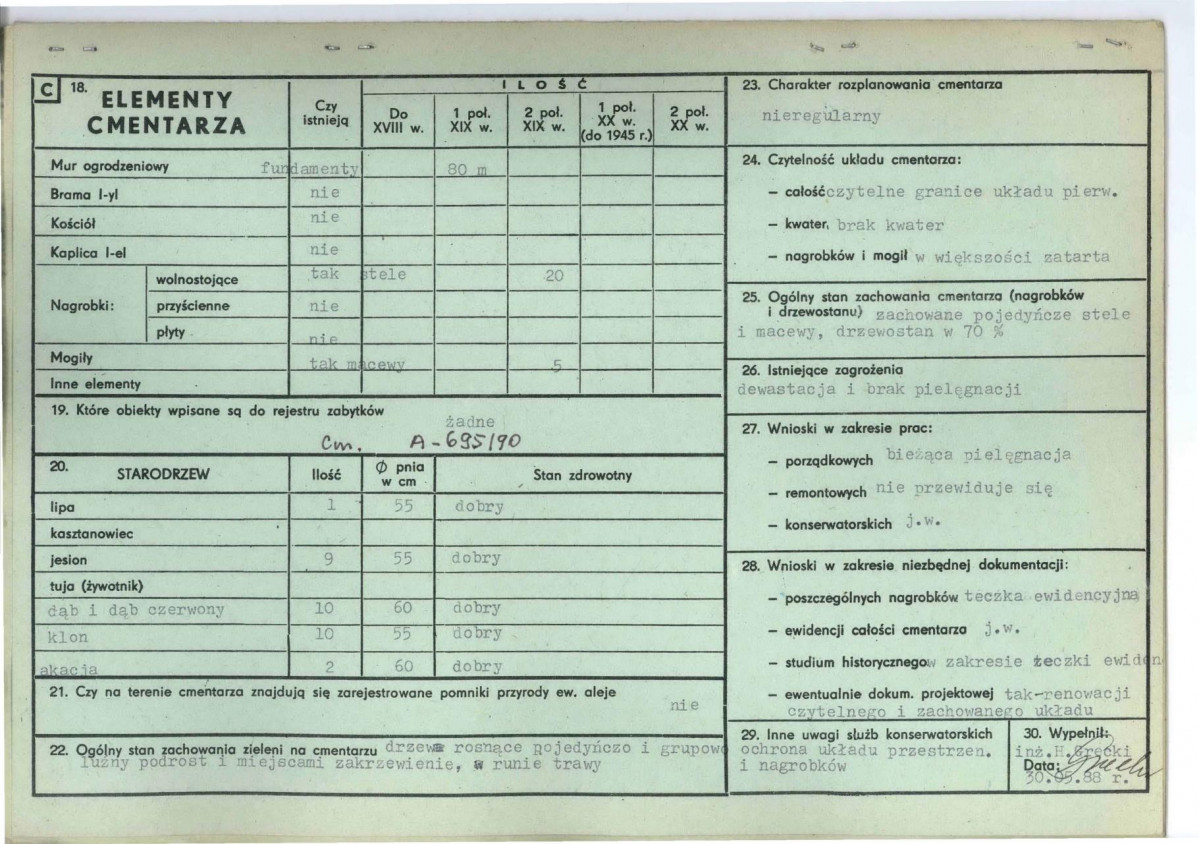 C 18. ELEMENTY CMENTARZA
Czy istnieją
I L O Ś Ć
Do XVIII w.
1 poł. XIX w.
2 poł. XIX w.
1 poł. XX w. (do 1945 r.)
2 poł. XX w.
Mur ogrodzeniowy fundamenty 80 m
Brama I-yl nie
Kościół nie
Kaplica I-el nie
Nagrobki:
wolnostojące tak stele 20
przyścienne nie
płyty nie
Mogiły tak macewy 5
Inne elementy
19. Które obiekty wpisane są do rejestru zabytków
żadne
Cm. A-695/90
20. STARODRZEW Ilość Ø pnia w cm Stan zdrowotny
lipa 1 55 dobry
kasztanowiec
jesion 9 55 dobry
tuja (żywotnik)
dąb i dąb czerwony 10 60 dobry
klon 10 55 dobry
akacja 2 60 dobry
21. Czy na terenie cmentarza znajdują się zarejestrowane pomniki przyrody ew. aleje
nie
22. Ogólny stan zachowania zieleni na cmentarzu drzewa rosnące pojedyńczo i grupowo
luźny podrost i miejscami zakrzewienie, w runie trawy
23. Charakter rozplanowania cmentarza
nieregularny
24. Czytelność układu cmentarza:
– całość czytelne granice układu pierw.
– kwater, brak kwater
– nagrobków i mogił w większości zatarta
25. Ogólny stan zachowania cmentarza (nagrobków
i drzewostanu) zachowane pojedyńcze stele
i macewy, drzewostan w 70 %
26. Istniejące zagrożenia
dewastacja i brak pielęgnacji
27. Wnioski w zakresie prac:
– porządkowych bieżąca pielęgnacja
– remontowych nie przewiduje się
– konserwatorskich j.w.
28. Wnioski w zakresie niezbędnej dokumentacji:
– poszczególnych nagrobków teczka ewidencyjna
– ewidencji całości cmentarza j.w.
– studium historycznego w zakresie teczki ewiden
– ewentualnie dokum. projektowej tak-renowacji
czytelnego i zachowanego układu
29. Inne uwagi służb konserwatorskich
ochrona układu przestrzen.
i nagrobków
30. Wypełnił:
inż.H.Grecki
Data:
30.05.88 r.